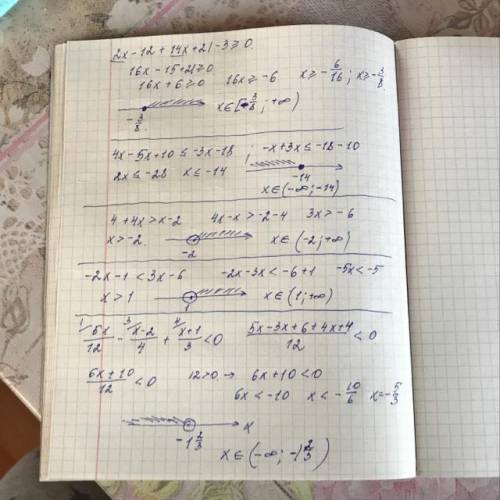 2x-12+14x+21-3≥0.
16x-15+21≥0
16x+6≥0 16x≥-6 x≥-6/16; x≥-3/8
-3/8 x∈[-3/8; +∞)
4x-5x+10≤-3x-18 -x+3x≤-18-10
2x≤-28 x≤-14
-14
x∈(-∞; -14)
4+4x>x-2 4x-x>-2-4 3x>-6
x>-2 -2 x∈(-2; +∞)
-2x-1<3x-6 -2x-3x<-6+1 -5x<-5
x>1 1 x∈(1; +∞)
1/ 5x/12 - 3/ x-2/4 + 4/ x+1/3 <0 5x-3x+6+4x+4/12 <0
6x+10/12 <0 12>0 → 6x+10<0
6x<-10 x<-10/6 x=-5/3
-1 2/3 x
x∈(-∞; -1 2/3)